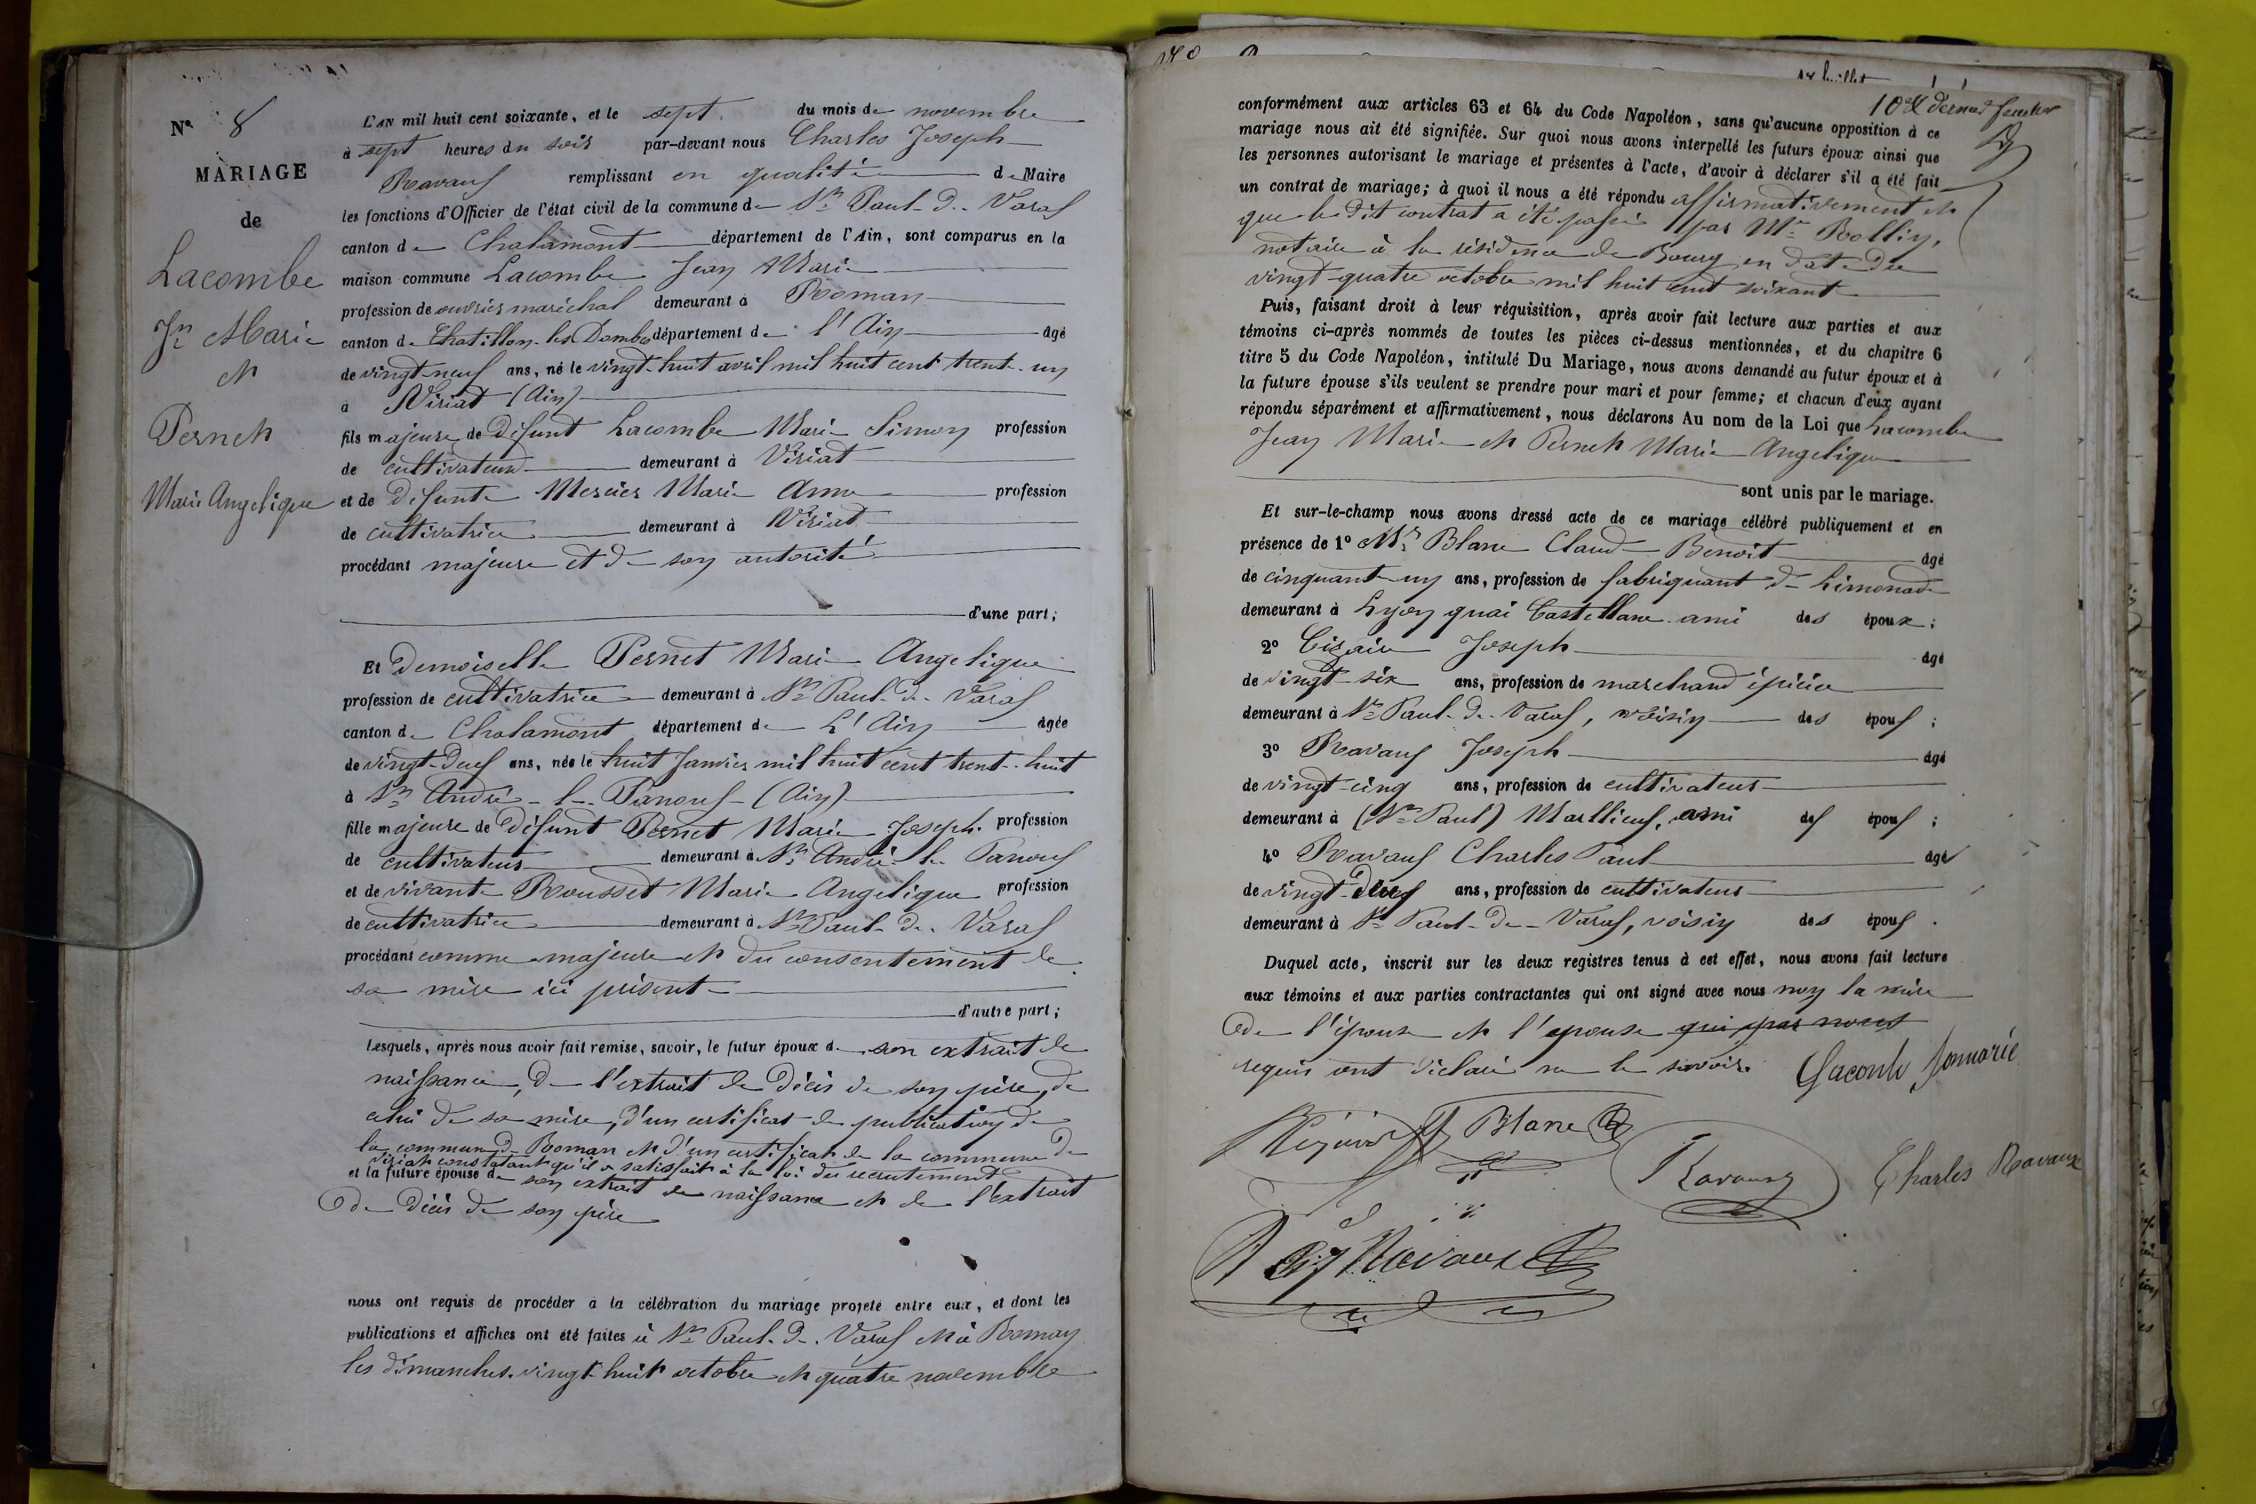 N° 8
MARIAGE
de
Lacombe
Jn Marie
et
Pernet
Marie Angelique
L'AN mil huit cent soixante, et le sept du mois de novembre
à sept heures du soir par-devant nous Charles Joseph
Ravaux remplissant en qualité de Maire
les fonctions d'Officier de l'état civil de la commune de St Paul-de-Varax
canton de Chalamont département de l'Ain, sont comparus en la
maison commune Lacombe Jean Marie
profession de ouvrier maréchal demeurant à Roman
canton de Chatillon-les-Dombes département de l'Ain âgé
de vingt-neuf ans, né le vingt-huit avril mil huit cent trente-un
à Viriat (Ain)
fils majeure de défunt Lacombe Marie Simon profession
de cultivateur demeurant à Viriat
et de défunte Mercier Marie Anne profession
de cultivatrice demeurant à Viriat
procédant majeure et de son autorité
d'une part;
Et Demoiselle Pernet Marie Angelique
profession de cultivatrice demeurant à St Paul-de-Varax
canton de Chalamont département de L'Ain âgée
de vingt-deux ans, née le huit Janvier mil huit cent trente-huit
à St André-le-Panoux (Ain)
fille majeure de défunt Pernet Marie Joseph profession
de cultivateur demeurant à St André-le Panoux
et de vivante Rousset Marie Angelique profession
de cultivatrice demeurant à St Paul-de-Varax
procédant comme majeure et du consentement de
sa mère ici présente
d'autre part;
Lesquels, après nous avoir fait remise, savoir, le futur époux de son extrait de
naissance, de l'extrait de décès de son père, de
celui de sa mère, d'un certificat de publication de
la commune de Roman et d'un certificat de la commune de
Viriat constatant qu'il a satisfait à la loi du recrutement
et la future épouse de son extrait de naissance et de l'extrait
de décès de son père
nous ont requis de procéder à la célébration du mariage projeté entre eux, et dont les
publications et affiches ont été faites à St Paul-de-Varax et à Roman
les dimanches vingt-huit octobre et quatre novembre
10
conformément aux articles 63 et 64 du Code Napoléon, sans qu'aucune opposition à ce
mariage nous ait été signifiée. Sur quoi nous avons interpellé les futurs époux ainsi que
les personnes autorisant le mariage et présentes à l'acte, d'avoir à déclarer s'il a été fait
un contrat de mariage; à quoi il nous a été répondu affirmativement et
que le dit contrat a été passé par Me Rollin,
notaire à la résidence de Bourg en date du
vingt-quatre octobre mil huit cent soixante
Puis, faisant droit à leur réquisition, après avoir fait lecture aux parties et aux
témoins ci-après nommés de toutes les pièces ci-dessus mentionnées, et du chapitre 6
titre 5 du Code Napoléon, intitulé Du Mariage, nous avons demandé au futur époux et à
la future épouse s'ils veulent se prendre pour mari et pour femme; et chacun d'eux ayant
répondu séparément et affirmativement, nous déclarons Au nom de la Loi que Lacombe
Jean Marie et Pernet Marie Angelique
sont unis par le mariage.
Et sur-le-champ nous avons dressé acte de ce mariage célébré publiquement et en
présence de 1° Mr Blanc Claude Benoit âgé
de cinquante-un ans, profession de fabriquant de Limonade
demeurant à Lyon quai Castellane ami des époux;
2° Joseph âgé
de vingt-six ans, profession de marchand épicier
demeurant à St Paul-de-Varax, voisin des époux;
3° Ravaux Joseph âgé
de vingt-cinq ans, profession de cultivateur
demeurant à (St Paul) Marlieux, ami des époux;
4° Ravaux Charles Paul âgé
de vingt-deux ans, profession de cultivateur
demeurant à St Paul-de-Varax, voisin des époux.
Duquel acte, inscrit sur les deux registres tenus à cet effet, nous avons fait lecture
aux témoins et aux parties contractantes qui ont signé avec nous non la mère
de l'épouse et l'epouse qui par nous
requis ont déclaré ne le savoir.
Lacombe
Blanc
Ravaux
Charles Ravaux
Ravaux